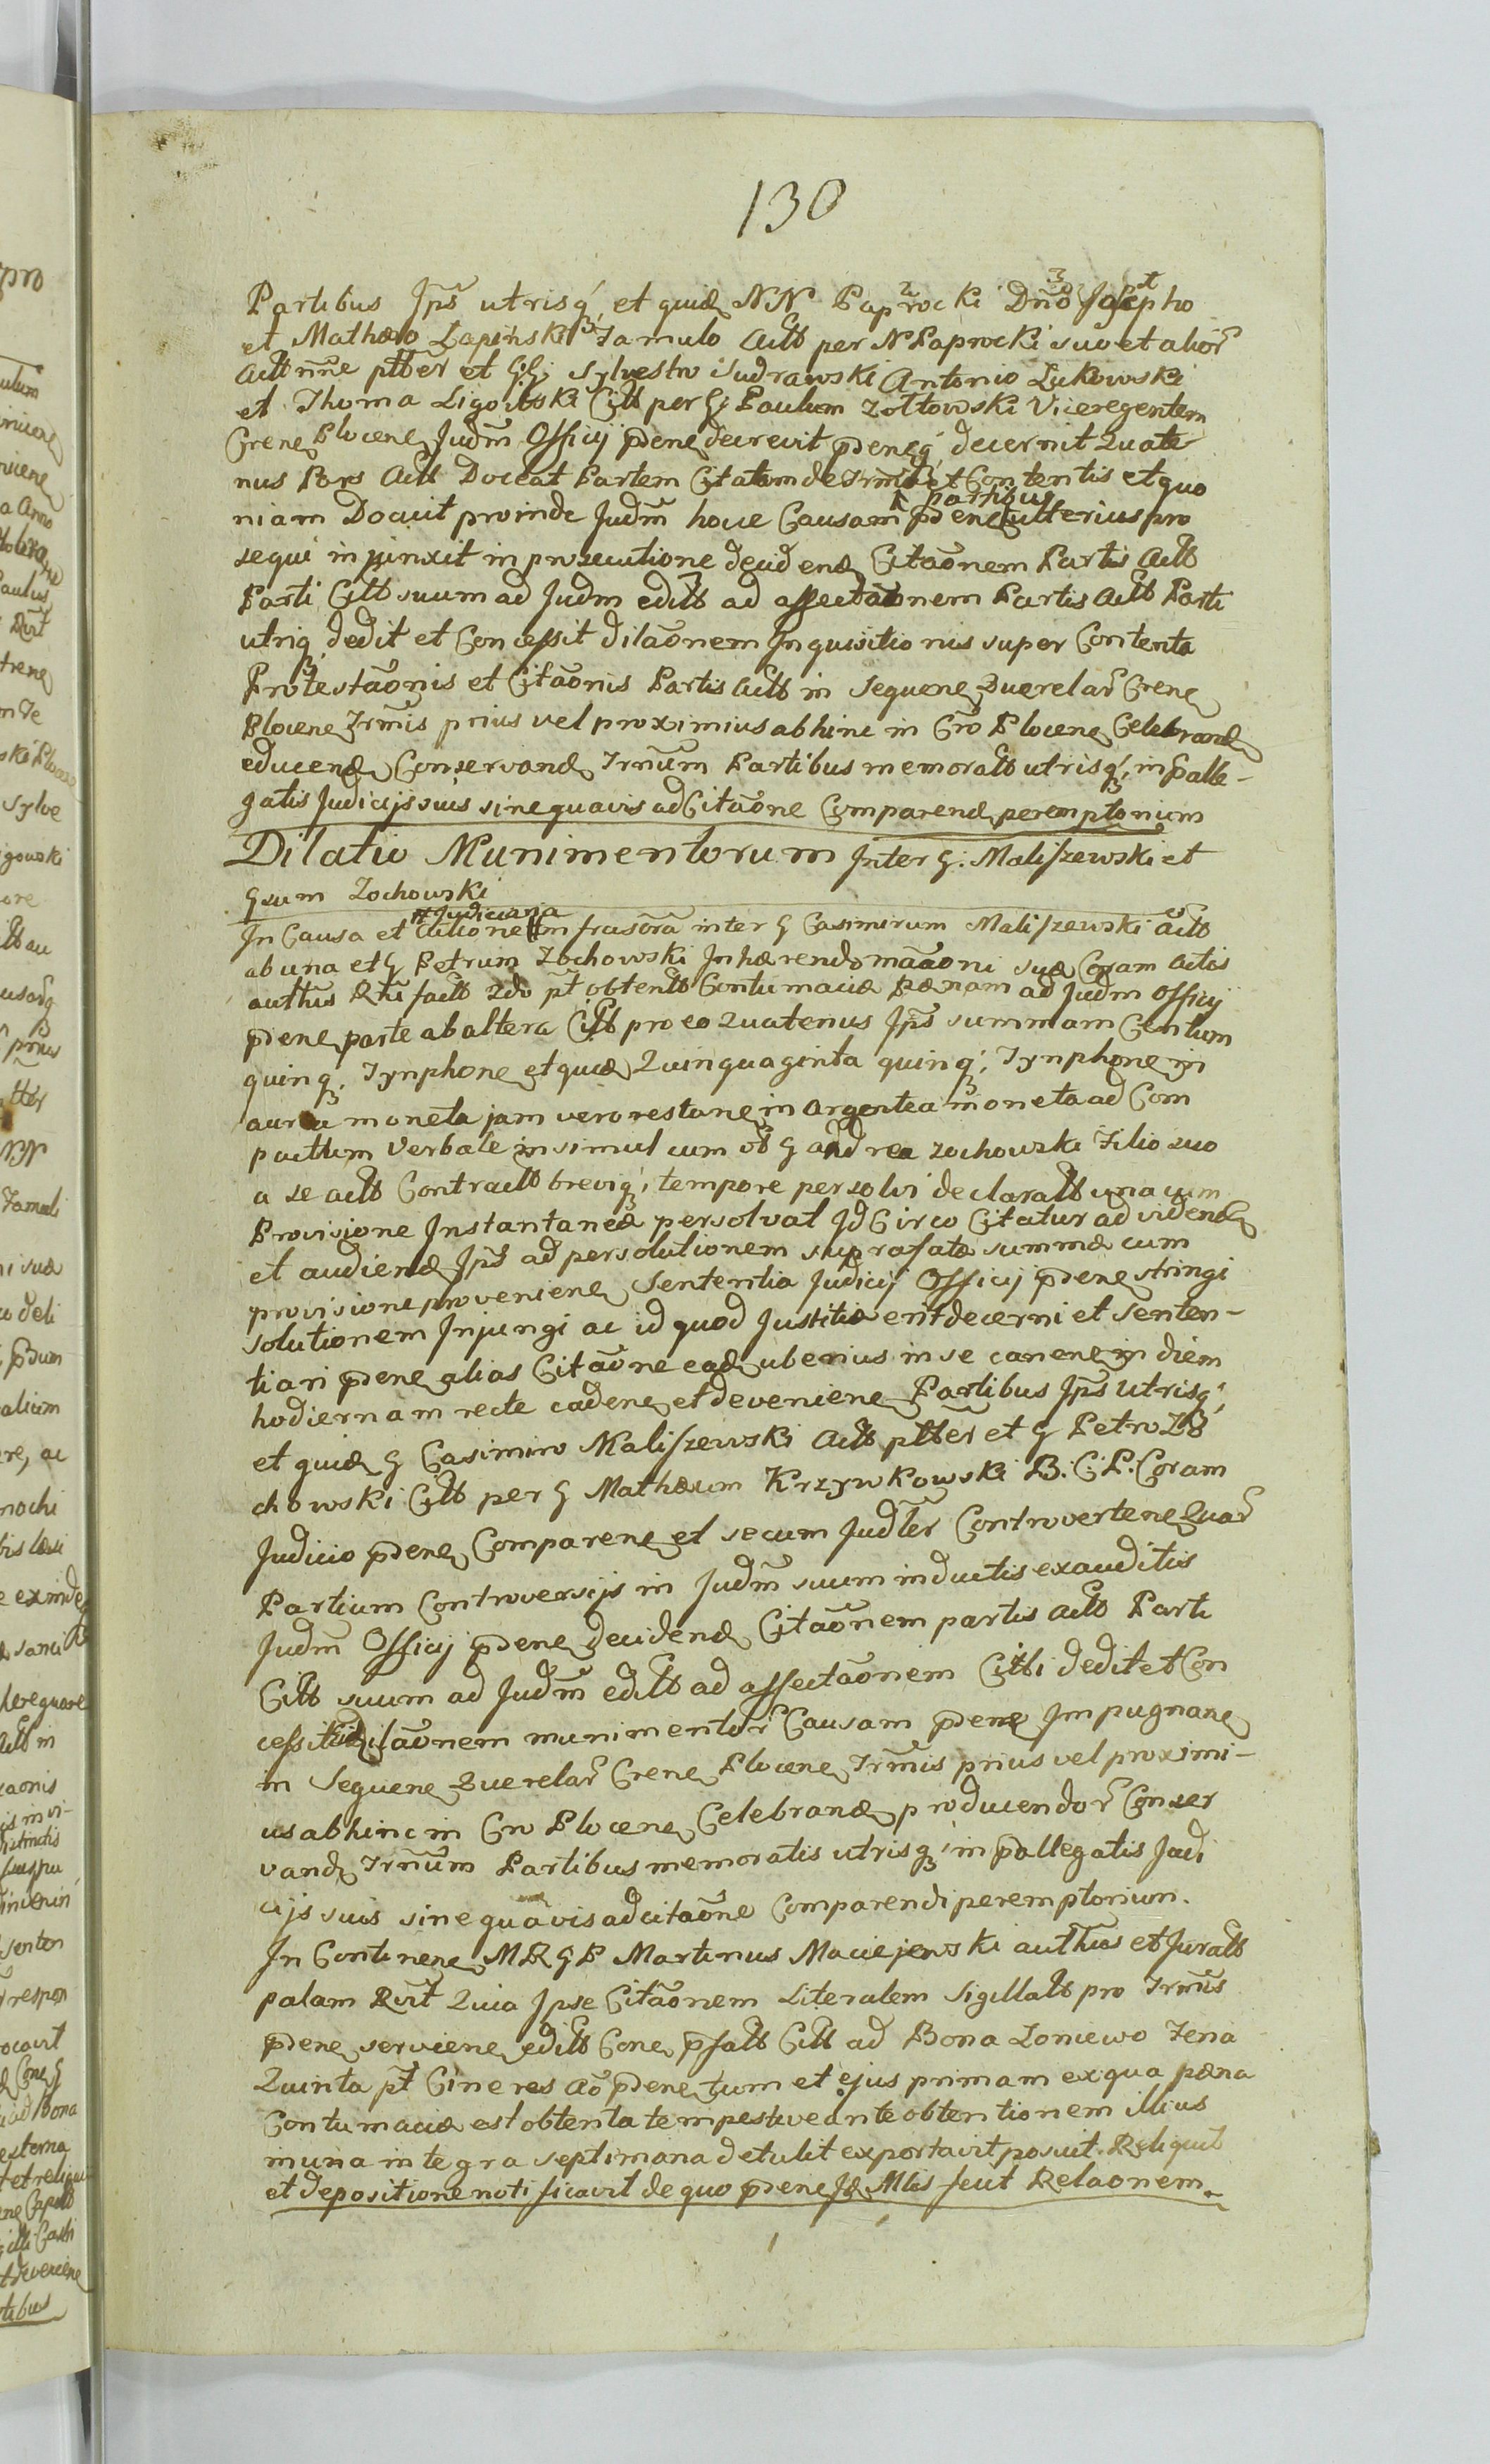 130
Partibus Jps̃ utrisq, et quidẽ NN Paprocki Dno Josepho
et Mathæo Lapinski Famulo Actt per N Paprocki suo et alior̃
Actt nñe ptt̃er et GG Sylvestro Sudrawski Antonio Lukowski
et Thoma Ligowski Citt per G Paulum Zołtowski Viceregentem
Crene Plocene Judm̃ Officij pdene decrevit pdeneq decernit Quate
nus Pars Actt Doceat Partem Citatam de Trmõ et Contentis et quo
niam Docuit proinde Judm̃ hocce Causam pdene partibus ulterius pro
sequi injunxit in prosecutione decidend Citaõnem Partis Actt
Parti Citt suum ad Judm editt ad affectaõnem Partis Actt Parti
utriq dedit et Concessit dilaõnem Inquisitionis super Contenta
Protestaõnis et Citaõnis Partis Actt in Sequene Querelar̃ Crene
Plocene Trm̃is prius vel proximius abhinc in Cro Plocene Celebrand
educend Conservand Trm̃um Partibus memoratt utrisq, in palle-
gatis Judicijs suis sine quavis adCitaõne Comparend peremptorium
Dilatio Munimentorum Inter G. Maliszewski et
Gsum Zochowski
In Causa et Actione Judiciaria Infrascrã inter G Casimirum Maliszewski actt
ab una et G Petrum Zochowski Inhærendo mãaoni suæ Coram actis
authũs Rtñi factt 2do pt̃ obtentt Contumaciæ Pænam ad Judm̃ Officij
pdene parte ab altera Citt pro eo Quatenus Jps̃ summam Centum
quinq, Tynphone et quidẽ Quinquaginta quinq, Tynphone in
aurea moneta jam vero restane in Argentea moneta ad Com
pactum Verbale insimul cum olt G Andrea Zochowski Filio suo
a se actt Contractt breviq, tempore persolvi declaratt una cum
Provisione Instantaneæ persolvat Id Circo Citatur ad videnđ
et audiend Jps̃ ad persolutionem suprafatæ summæ cum
provisione proveniene Sententia Judicij Officij pdene stringi
solutionem Injungi ac id quod Justitiæ erit decerni et Senten-
tiari pdene alias Citaõne eadẽ uberius in se canene in diem
hodiernam recte cadene et deveniene Partibus Jps̃ utrisq,
et quidẽ G Casimiro Maliszewski Actt ptt̃er et G Petro Zo
chowski Citt per G Mathæum Krzywkowski B. C. P. Coram
Judicio pdene Comparene et secum Judt̃er Controvertene Quar̃
Partium Controversijs in Judm̃ suum inductis exauditis
Judm̃ Officij pdene decidend Citaõnem partis Actt Parti
Citt suum ad Judm̃ editt ad affectaõnem Citti dedit et Con
cessit dilaõnem munimentor̃ Causam pdene Impugnane
in Sequene Querelar̃ Crene Plocene Trm̃is prius vel proximi-
us abhinc in Cro Plocene Celebrand producendor̃ Conser
vand Trm̃um Partibus memoratis utrisq, in pallegatis Judi
cijs suis sine quavis adcitaõne Comparendi peremptorium.
In Continene MRGP Martinus Maciejewski authũs et Juratt
palam Rvit̃ Quia Ipse Citaõnem Literalem Sigillatt pro Trm̃is
pdene serviene editt Cone pfatt Citt ad Bona Loniewo Feria
Quinta pt̃ Cineres Aõ pdene tum et ejus primam ex qua pæna
Contumaciæ est obtenta tempestive ante obtentionem illius
in una integra septimana detulit exportavit posuit Reliquit
et de positione notificavit de quo pdene Jdẽ Mlis fecit Relaonem.